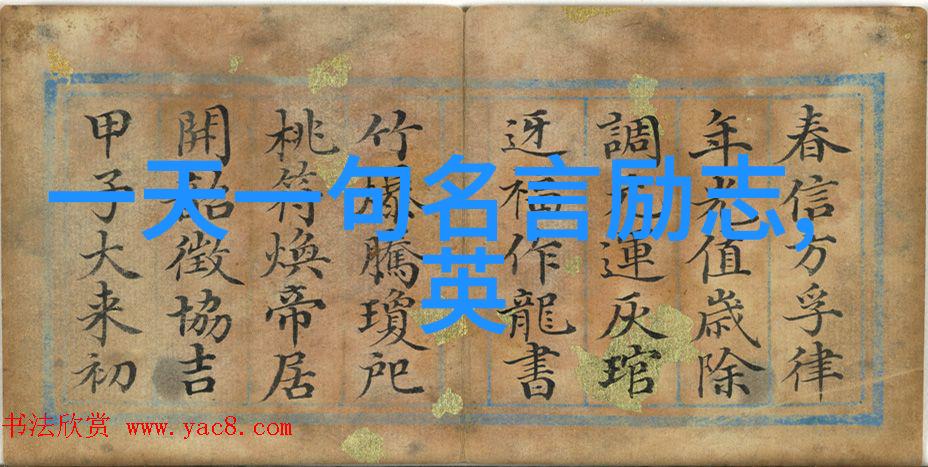 春信方孚律
年光值歲除
調運灰琯
迓福作龍書
竹爆騰瓊戺
桃符煥帝居
開韶徵協吉
甲子大来初
一天一句名言励志,
英
书法欣赏 www.yac8.com